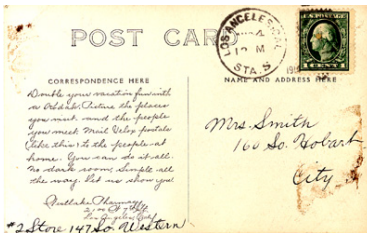 POST CARD
LOS ANGELES, CAL.
M
STA. S
191
1 CENT 1
CORRESPONDENCE HERE
NAME AND ADDRESS HERE
Double your vacation fun with
a Kodak. Picture the places
you visit and the people
you meet. Mail Velox postals
(like this) to the people at
home. You can do it all.
No dark room. Simple all
the way. Let us show you
Pharmacy
Los Angeles Cal
#2 Store 147 So. Western
Mrs. Smith
160 So. Hobart
City